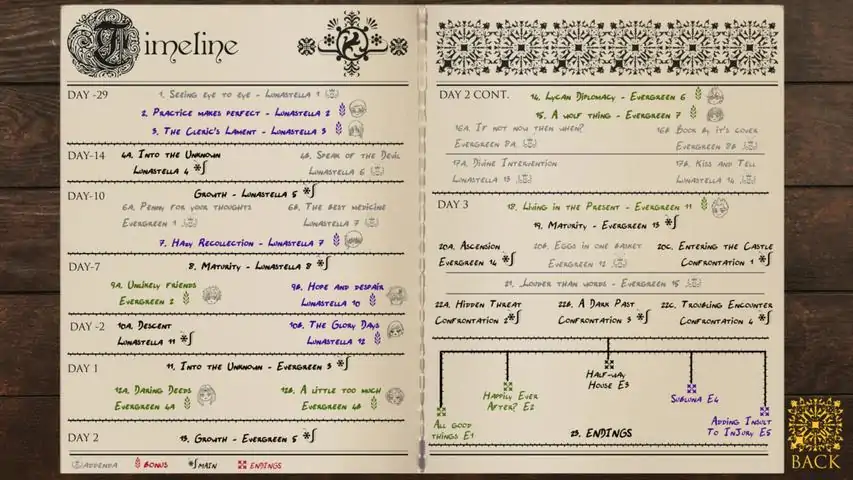 Timeline
DAY -29
1. Seeing eye to eye - Lunastella 1
2. Practice makes perfect - Lunastella 2
3. The Cleric's Lament - Lunastella 3
DAY-14
4A. Into the Unknown
Lunastella 4
4B. Speak of the Devil
Lunastella 6
DAY-10
Growth - Lunastella 5
6A. Penny for your thoughts
Evergreen 1
6B. The best medicine
Lunastella 7
7. Hazy Recollection - Lunastella 7
DAY-7
8. Maturity - Lunastella 8
9A. Unlikely friends
Evergreen 2
9B. Hope and despair
Lunastella 10
DAY -2
10A. Descent
Lunastella 11
10B. The Glory Days
Lunastella 12
DAY 1
11. Into the Unknown - Evergreen 3
12A. Daring Deeds
Evergreen 4A
12B. A little too much
Evergreen 4B
DAY 2
13. Growth - Evergreen 5
ADDENDA
BONUS
MAIN
ENDINGS
DAY 2 CONT.
14. Lycan Diplomacy - Evergreen 6
15. A wolf thing - Evergreen 7
16A. If not now then when?
Evergreen 8A
16B Book by it's cover
Evergreen 8B
17A. Divine Intervention
Lunastella 13
17B. Kiss and Tell
Lunastella 14
DAY 3
18. Living in the Present - Evergreen 11
19. Maturity - Evergreen 13
20A. Ascension
Evergreen 14
20B. Eggs in one basket
Evergreen 12
20C. Entering the Castle
Confrontation 1
21. Louder than words - Evergreen 15
22A. Hidden Threat
Confrontation 2
22B. A Dark Past
Confrontation 3
22C. Troubling Encounter
Confrontation 4
Half-way
House E3
Happily Ever
After? E2
Subluna E4
All good
things E1
Adding Insult
To Injury E5
23. ENDINGS
BACK